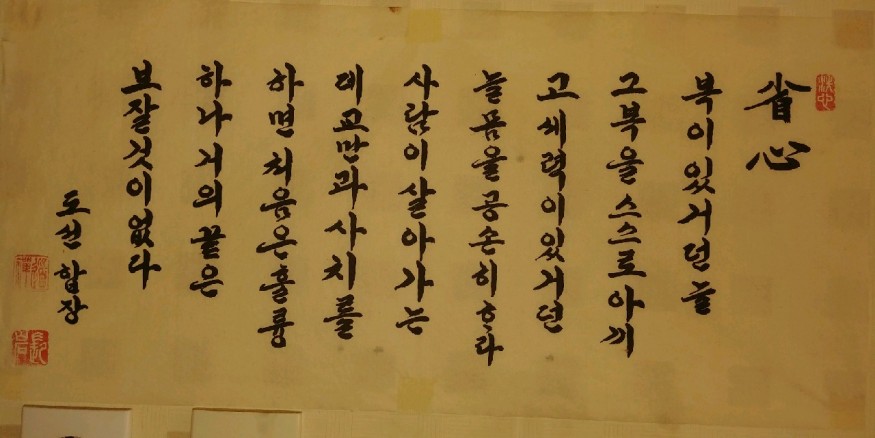 省心
복이있거던늘
그복을스스로아끼
고세력이있거던
늘몸을공손히ᄒᆞ라
사람이살아가는
데교만과사치를
하면처음은훌륭
하나거의끝은
보잘것이없다
도선합장